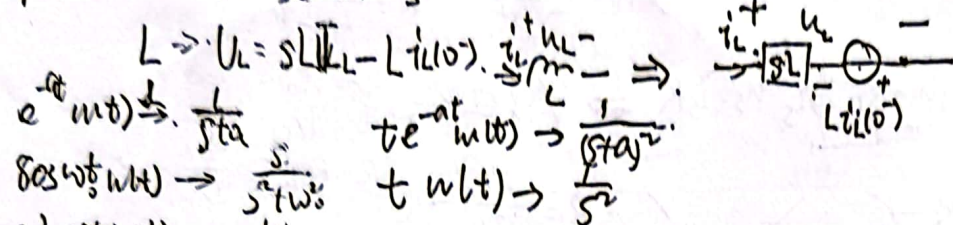 L → U_L = sL I_L − L i_L(0⁻). i_L + u_L − L ⇒ i_L + u_L − sL − + L i_L(0⁻)
e^{-at} u(t) → 1/(s+a) te^{-at} u(t) → 1/(s+a)²
cosω₀t u(t) → s/(s²+ω₀²) t u(t) → 1/s²